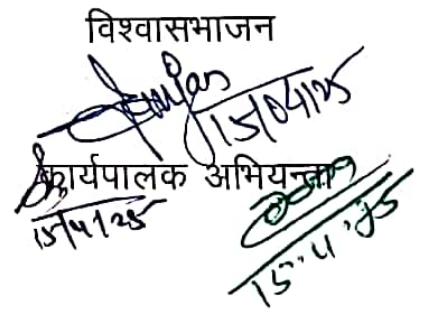 विश्वासभाजन
15/04/25
कार्यपालक अभियन्ता
15/4/25
15.4.25